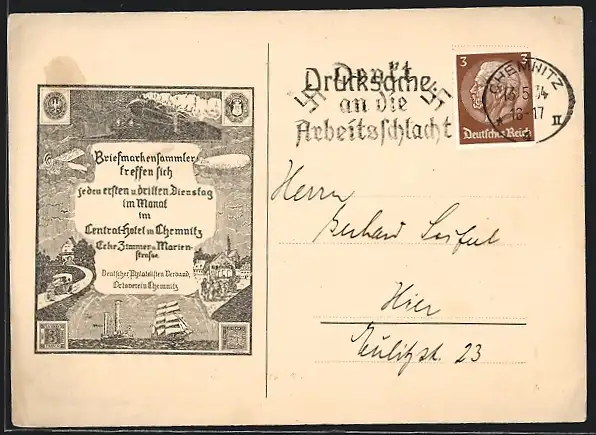 Briefmarkensammler
treffen sich
jeden ersten u. dritten Dienstag
im Monat
im
Central-Hotel in Chemnitz
Ecke Zimmer- u. Marien-
strasse.
Deutscher Philatelisten Verband,
Ortsverein Chemnitz
3
Drucksache
Denkt
an die
Arbeitsschlacht
3 3
Deutsches Reich
CHEMNITZ
5 34
16-17
II
Herrn
Gerhard Seifert
Hier
23